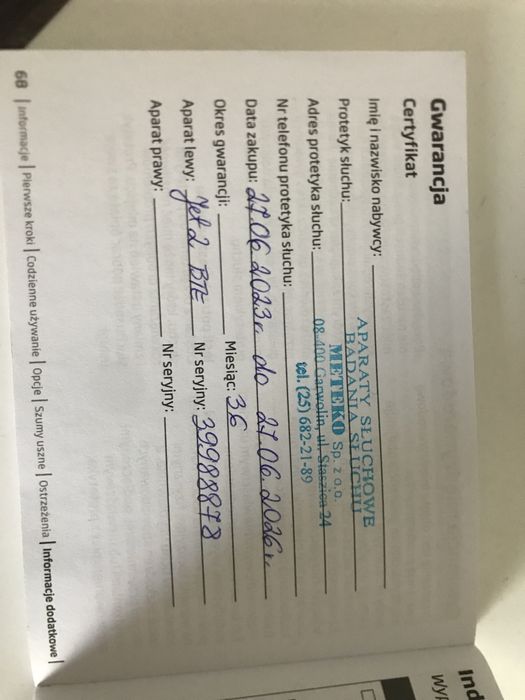 Gwarancja
Certyfikat
Imię i nazwisko nabywcy:
APARATY SŁUCHOWE
BADANIA SŁUCHU
Protetyk słuchu:
METEKO Sp. z o.o.
Adres protetyka słuchu:
08-400 Garwolin, ul. Staszica 24
tel. (25) 682-21-89
Nr telefonu protetyka słuchu:
Data zakupu: 27.06.2023r. do 27.06.2026r.
Okres gwarancji: Miesiąc: 36
Aparat lewy: Jet 2 BTE Nr seryjny: 39988878
Aparat prawy: Nr seryjny:
68 | Informacje | Pierwsze kroki | Codzienne używanie | Opcje | Szumy uszne | Ostrzeżenia | Informacje dodatkowe |
Ind